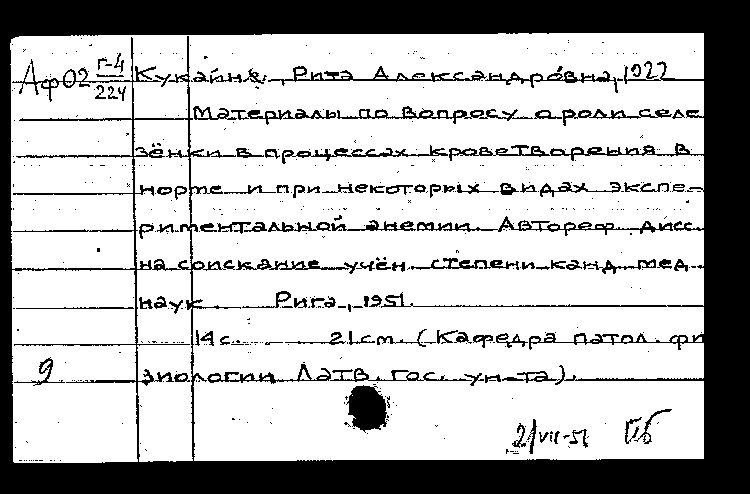 Аф02 Г-4/224 Кукайнє, Рита Александровна, 1922
Материалы по вопросу о роли селе
зёнки в процессах кроветворения в
норме и при некоторых видах экспе-
риментальной анемии. Автореф. дисс.
на соискание учён. степени канд. мед.
наук. Рига, 1951.
14 с. 21 см. (Кафедра патол. фи
9 зиологии Латв. гос. ун-та).
2/VII-51